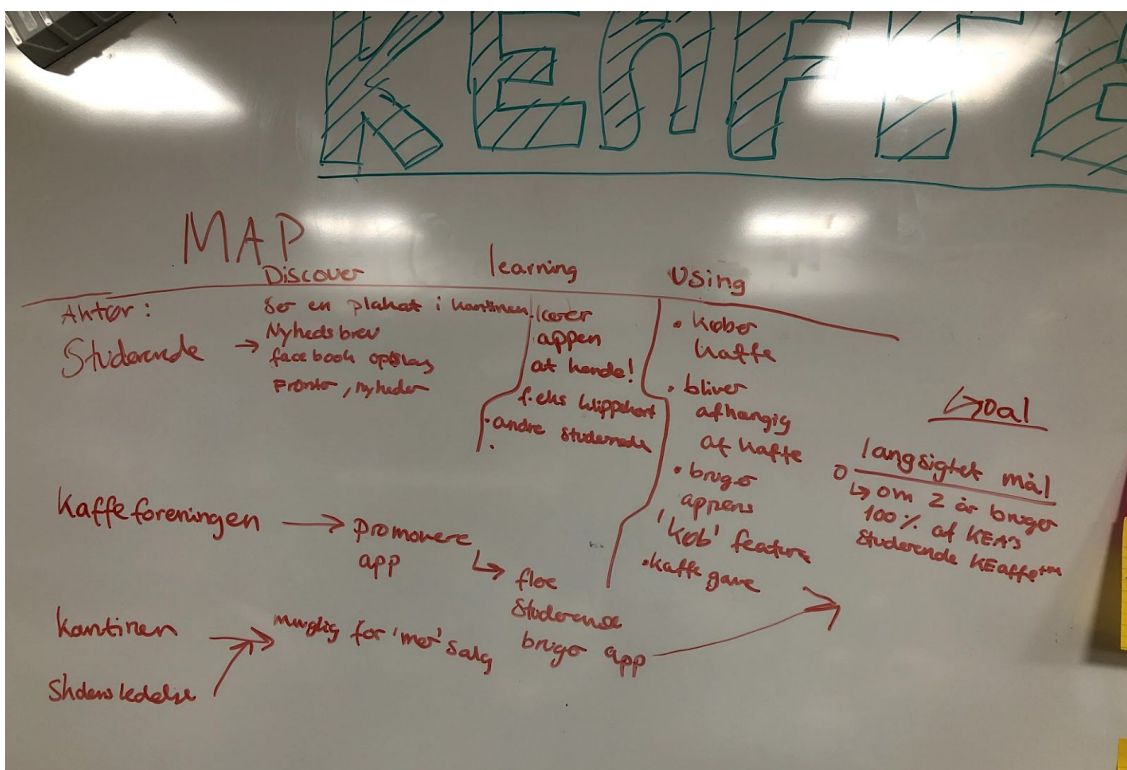 KEAFFE
MAP
Discover
learning
Using
Aktør:
Studerende →
Ser en plakat i kantinen
Nyhedsbrev
facebook opslag
Fronter, nyheder
lærer
appen
at kende!
f.eks klippekort
·andre studerende
·
• køber
kaffe
• bliver
afhængig
af kaffe
• bruger
appens
'køb' feature
•kaffe gave
Goal
langsigtet mål
↳ om 2 år bruger
100% af KEA's
Studerende KEaffe
Kaffeforeningen → promovere
app
↳ flere
Studerende
bruger app
kantinen → mulig for 'mer' salg